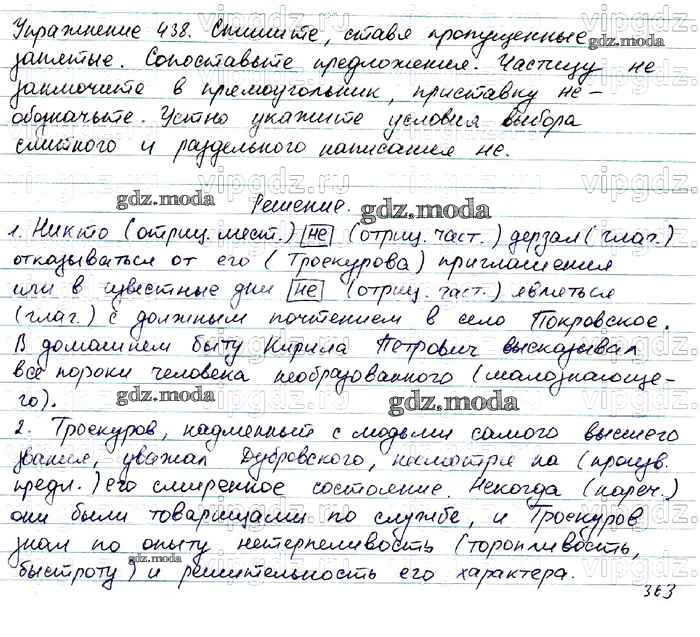 Упражнение 438. Спишите, ставя пропущенные
запятые. Сопоставьте предложения. Частицу не
заключите в прямоугольник, приставку не-
обозначьте. Устно укажите условия выбора
слитного и раздельного написания не.
Решение.
1. Никто (отриц. мест.) не (отриц. част.) дерзал (глаг.)
отказываться от его (Троекурова) приглашения
или в известные дни не (отриц. част.) являться
(глаг.) с должным почтением в село Покровское.
В домашнем быту Кирила Петрович высказывал
все пороки человека необразованного (малознающе-
го).
2. Троекуров, надменный с людьми самого высшего
звания, уважал Дубровского, несмотря на (произв.
предл.) его смиренное состояние. Некогда (нареч.)
они были товарищами по службе, и Троекуров
знал по опыту нетерпеливость (торопливость,
быстроту) и решительность его характера.
363
gdz.moda
gdz.moda
gdz.moda
gdz.moda
gdz.moda
gdz.moda
gdz.moda
gdz.moda
vipgdz.ru